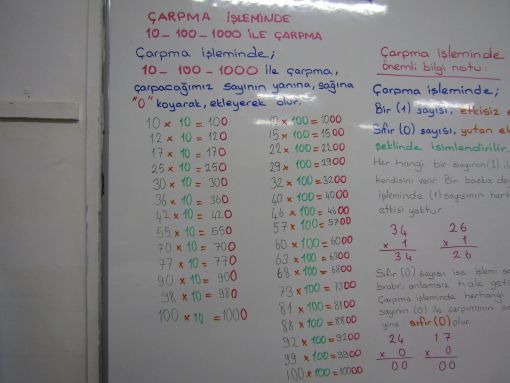 ÇARPMA İŞLEMİNDE
10-100-1000 İLE ÇARPMA
Çarpma işleminde;
10-100-1000 ile çarpma,
çarpacağımız sayının yanına, sağına
"0" koyarak, ekleyerek olur.
10 × 10 = 100
12 × 10 = 120
17 × 10 = 170
25 × 10 = 250
30 × 10 = 300
36 × 10 = 360
42 × 10 = 420
55 × 10 = 550
70 × 10 = 700
77 × 10 = 770
90 × 10 = 900
98 × 10 = 980
100 × 10 = 1000
10 × 100 = 1000
15 × 100 = 1500
22 × 100 = 2200
29 × 100 = 2900
32 × 100 = 3200
40 × 100 = 4000
46 × 100 = 4600
57 × 100 = 5700
60 × 100 = 6000
63 × 100 = 6300
68 × 100 = 6800
73 × 100 = 7300
81 × 100 = 8100
88 × 100 = 8800
92 × 100 = 9200
99 × 100 = 9900
100 × 100 = 10000
Çarpma işleminde
önemli bilgi notu:
Çarpma işleminde;
Bir (1) sayısı, etkisiz
Sıfır (0) sayısı, yutan
şeklinde isimlendirilir.
Her hangi bir sayının (1)
kendisini verir. Bir başka
işleminde (1) sayısının
etkisi yoktur.
34 26
× 1 × 1
34 26
Sıfır (0) sayısı ise işlemi
anlamsız hale
Çarpma işleminde herhangi
sayının (0) ile çarpımının
yine sıfır (0) olur.
24 17
× 0 × 0
00 00